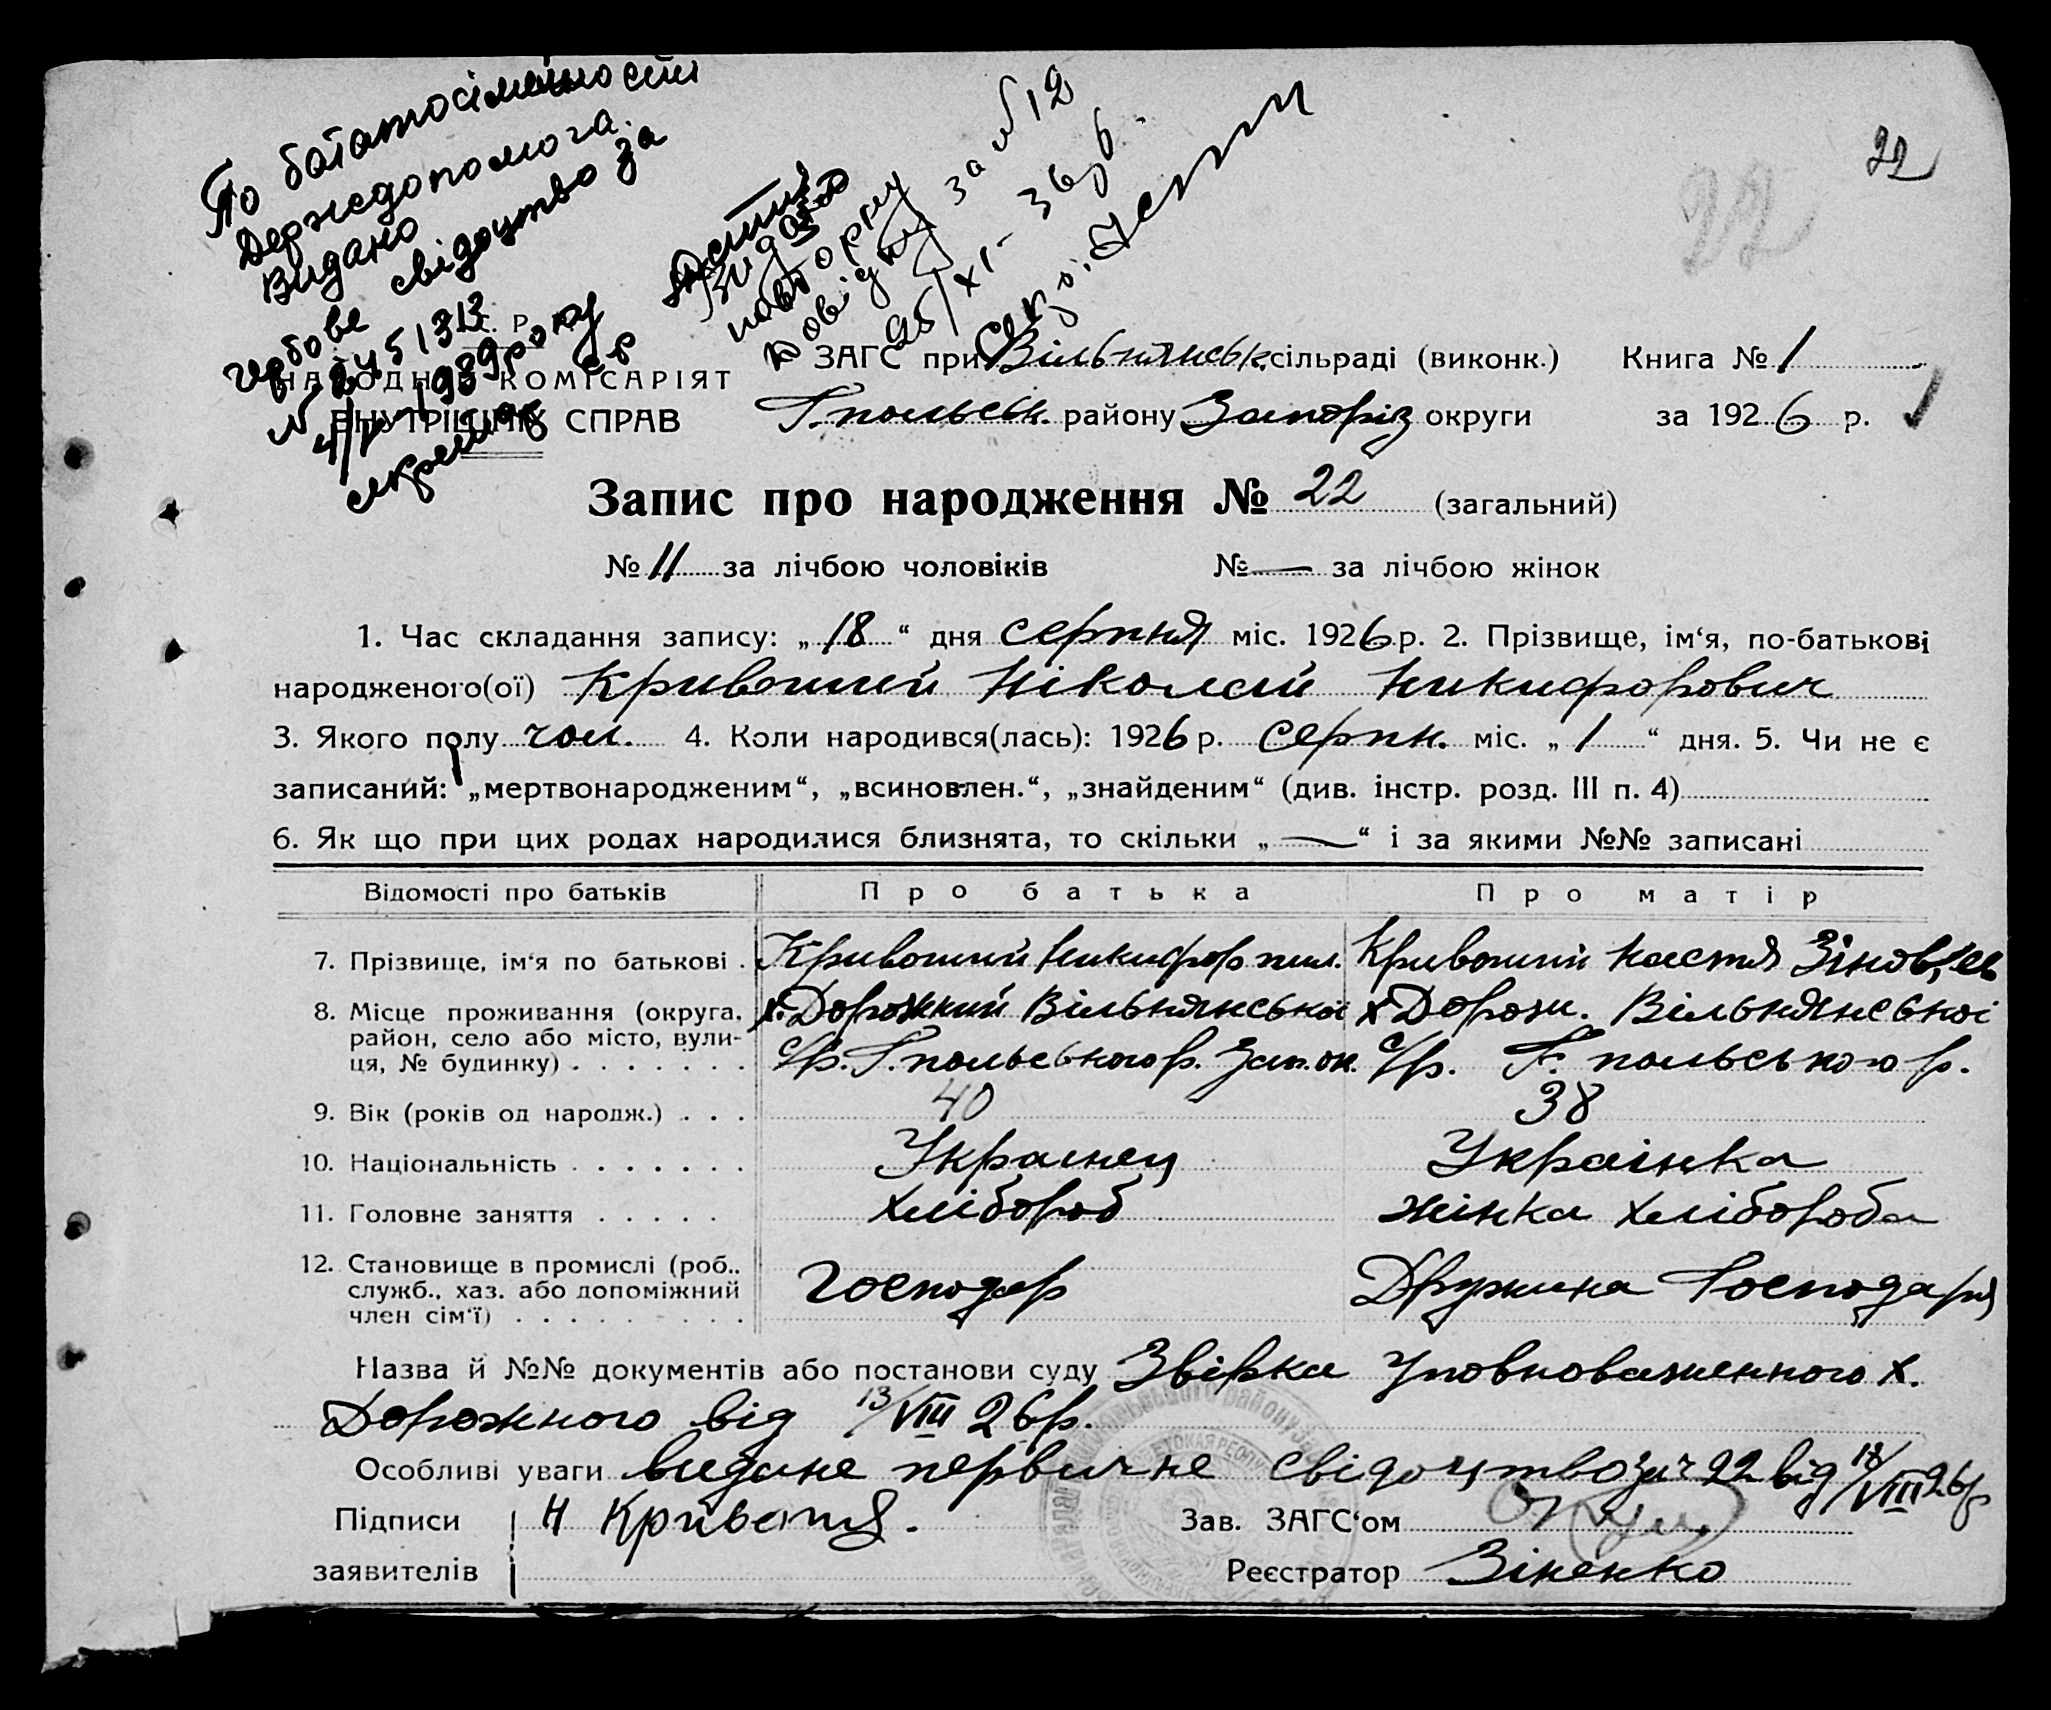 По багатосімейности
Держдопомога.
Видано
гербове свідоцтво за
4/V 1939 року
22
22
НАРОДНІЙ КОМІСАРІЯТ
ВНУТРІШНІХ СПРАВ
Видано
повторну
за № 12
25/XI - 36 р.
ЗАГС при Вільнянськ. сільраді (виконк.) Книга № 1
Г. польськ. району Запоріз округи за 1926 р.
Запис про народження № 22 (загальний)
№ 11 за лічбою чоловіків № — за лічбою жінок
1. Час складання запису: „ 18 “ дня серпня міс. 1926 р. 2. Прізвище, ім‘я, по-батькові
народженого(ої) Кривоший Ніколай Никифорович
3. Якого полу чол. 4. Коли народився(лась): 1926 р. серпн. міс. „ 1 “ дня. 5. Чи не є
записаний: „мертвонародженим“, „всиновлен.“, „знайденим“ (див. інстр. розд. III п. 4)
6. Як що при цих родах народилися близнята, то скільки „ — “ і за якими №№ записані
Відомості про батьків Про батька Про матір
7. Прізвище, ім‘я по батькові . Кривоший Никифор Кривоший Настя Зіновьев
8. Місце проживання (округа, х. Дорожний Вільнянської х Дорожн. Вільнянської
район, село або місто, вули- с/р. Г. польського р. Зап. ок. с/р. Г. польського р.
ця, № будинку) . . . . . . .
9. Вік (років од народж.) . . . 40 38
10. Національність . . . . . . . Украінец Украінка
11. Головне заняття . . . . . Хлібороб жінка хлібороба
12. Становище в промислі (роб., Господар Дружина Господаря
служб., хаз. або допоміжний
член сім‘ї) . . . . . . . . .
Назва й №№ документів або постанови суду Звірка Уповноваженного х.
Дорожного від 13/VIII 26 р.
Особливі уваги видане первичне свідоцтво за № 22 від 18/VIII 26 р
Підписи Н Кривошя. Зав. ЗАГС‘ом
заявителів Реєстратор Зіненко